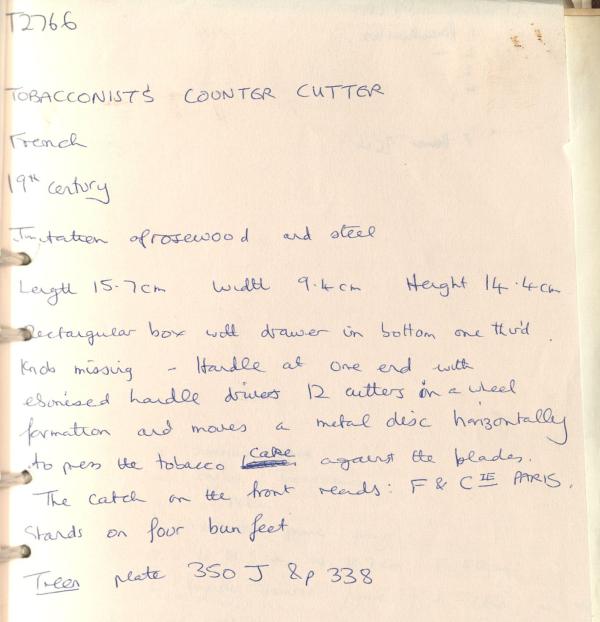 T2766
TOBACCONIST'S COUNTER CUTTER
French
19th century
Imitation of rosewood and steel
Length 15.7cm Width 9.4cm Height 14.4cm
Rectangular box with drawer in bottom one third.
Knob missing - Handle at one end with
ebonised handle drives 12 cutters in a wheel
formation and moves a metal disc horizontally
to press the tobacco cake against the blades.
The catch on the front reads: F & CIE PARIS.
Stands on four bun feet
Treen plate 350 J & p 338